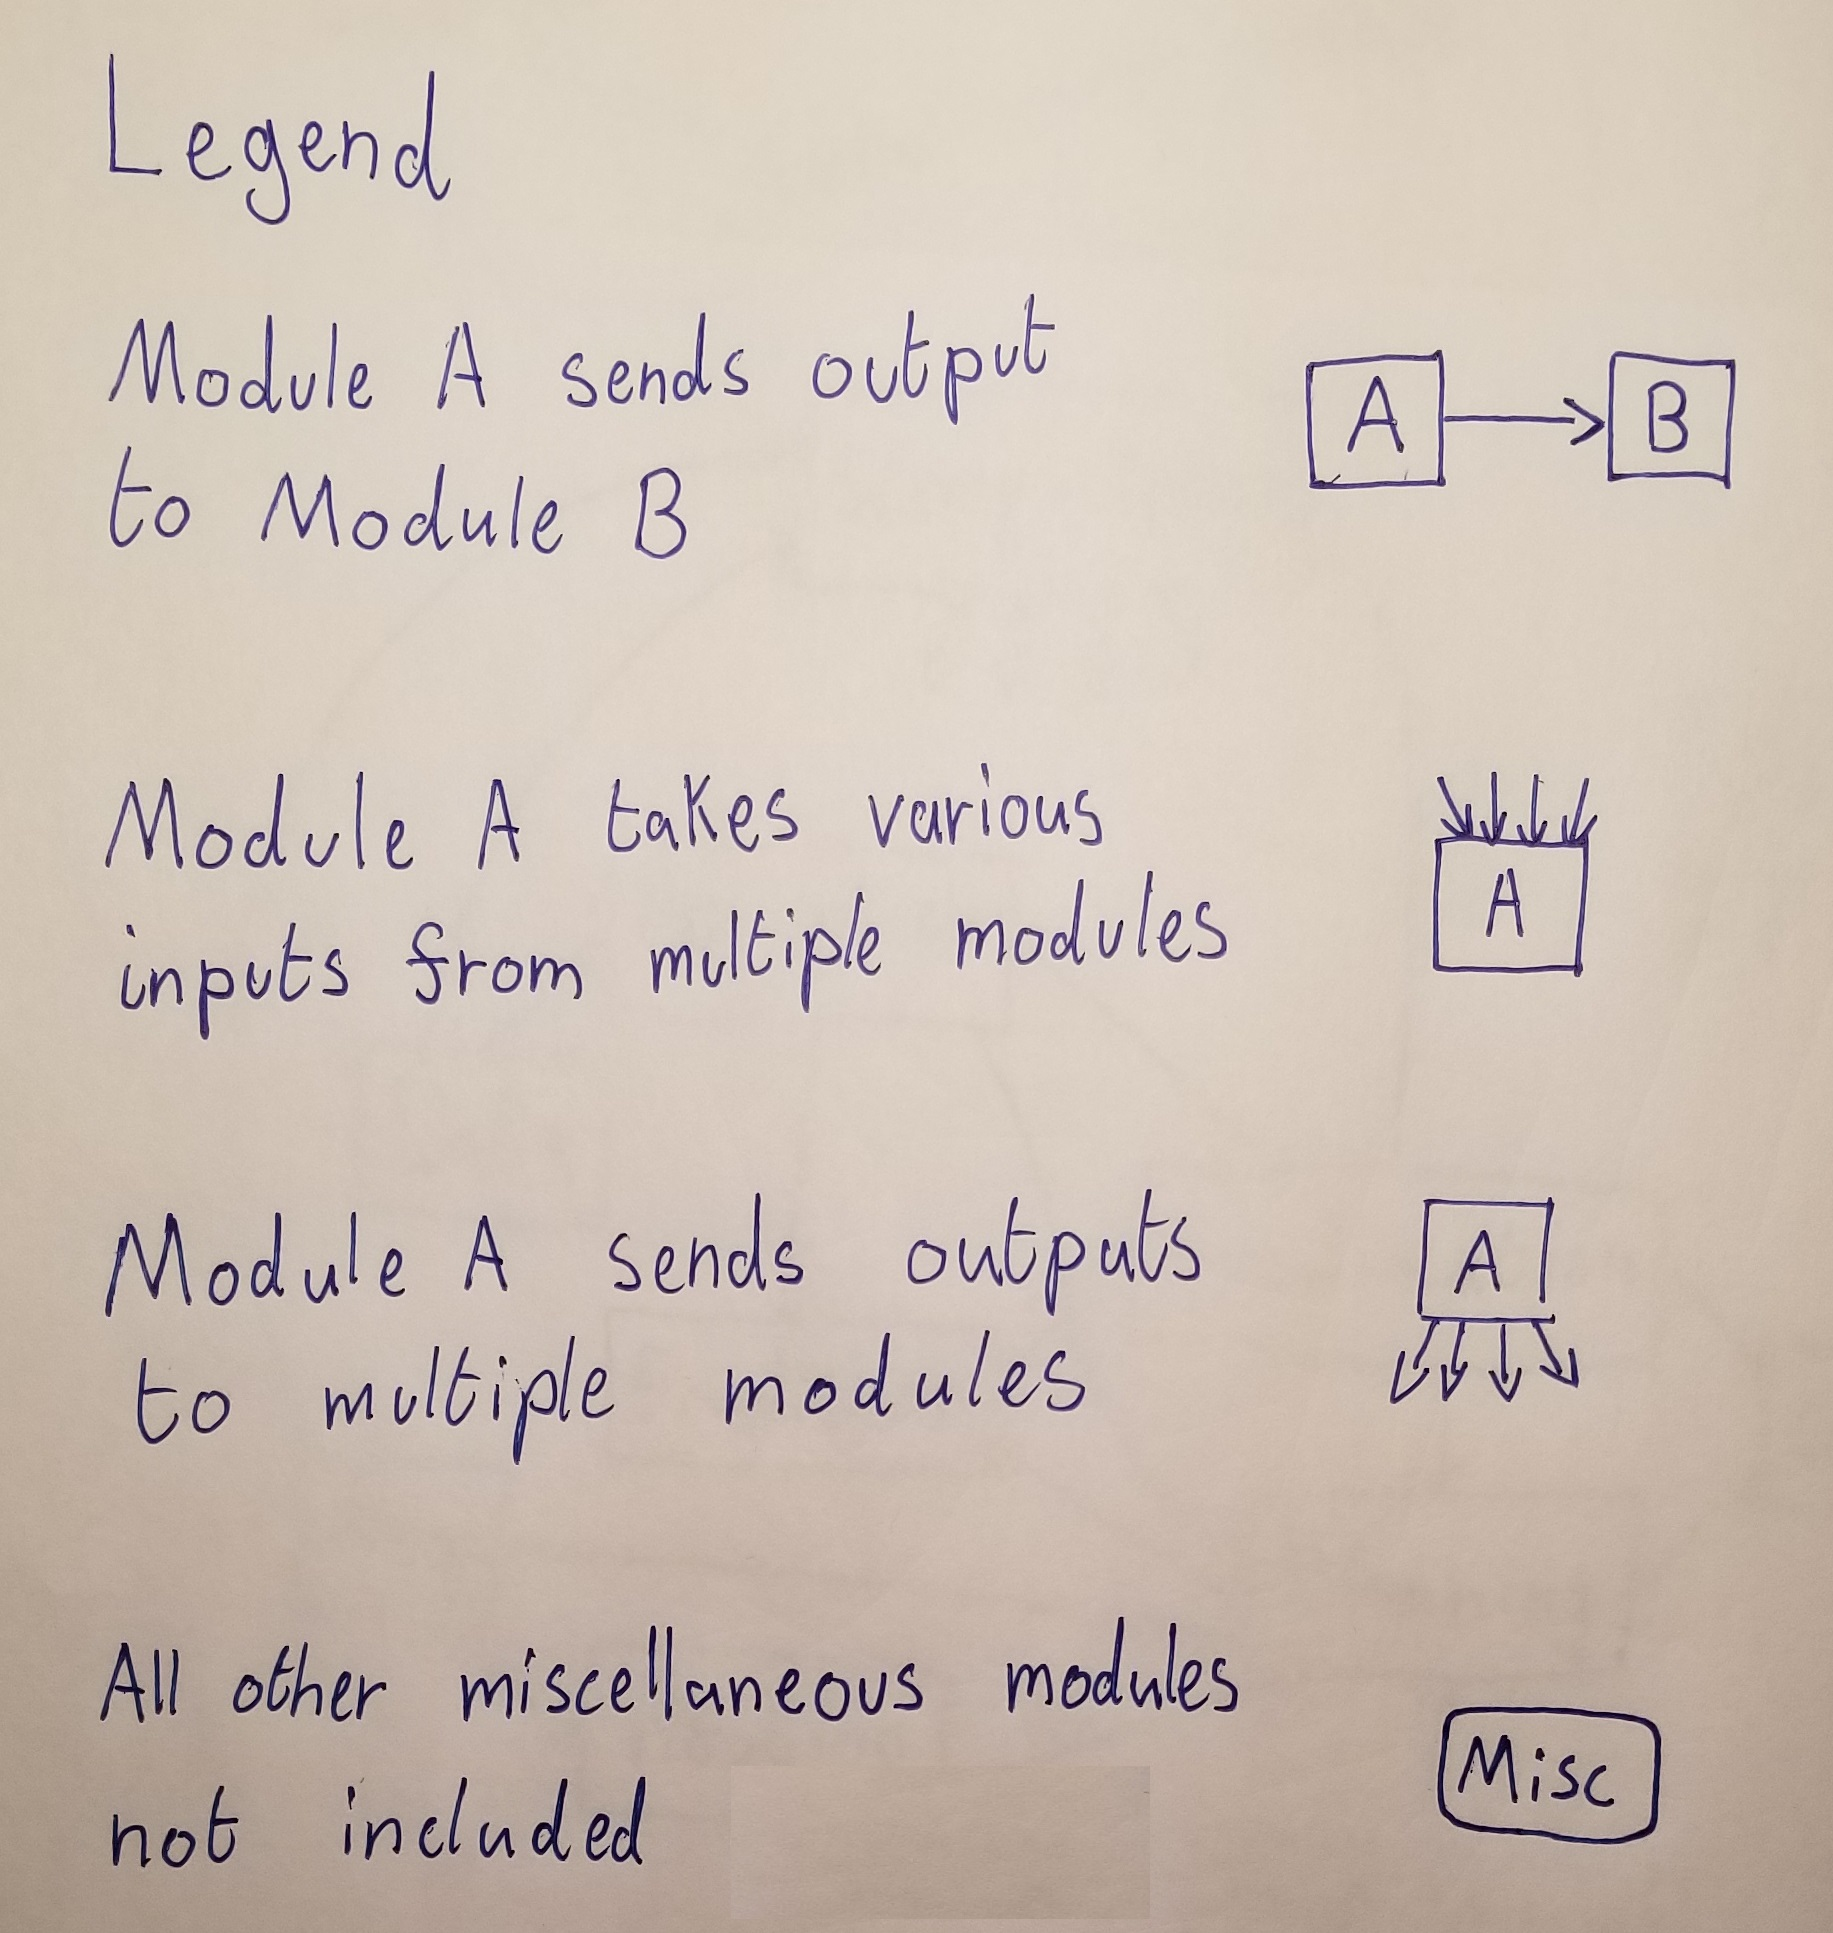 Legend
Module A sends output
to Module B
A
B
Module A takes various
inputs from multiple modules
A
Module A sends outputs
to multiple modules
A
All other miscellaneous modules
not included
Misc